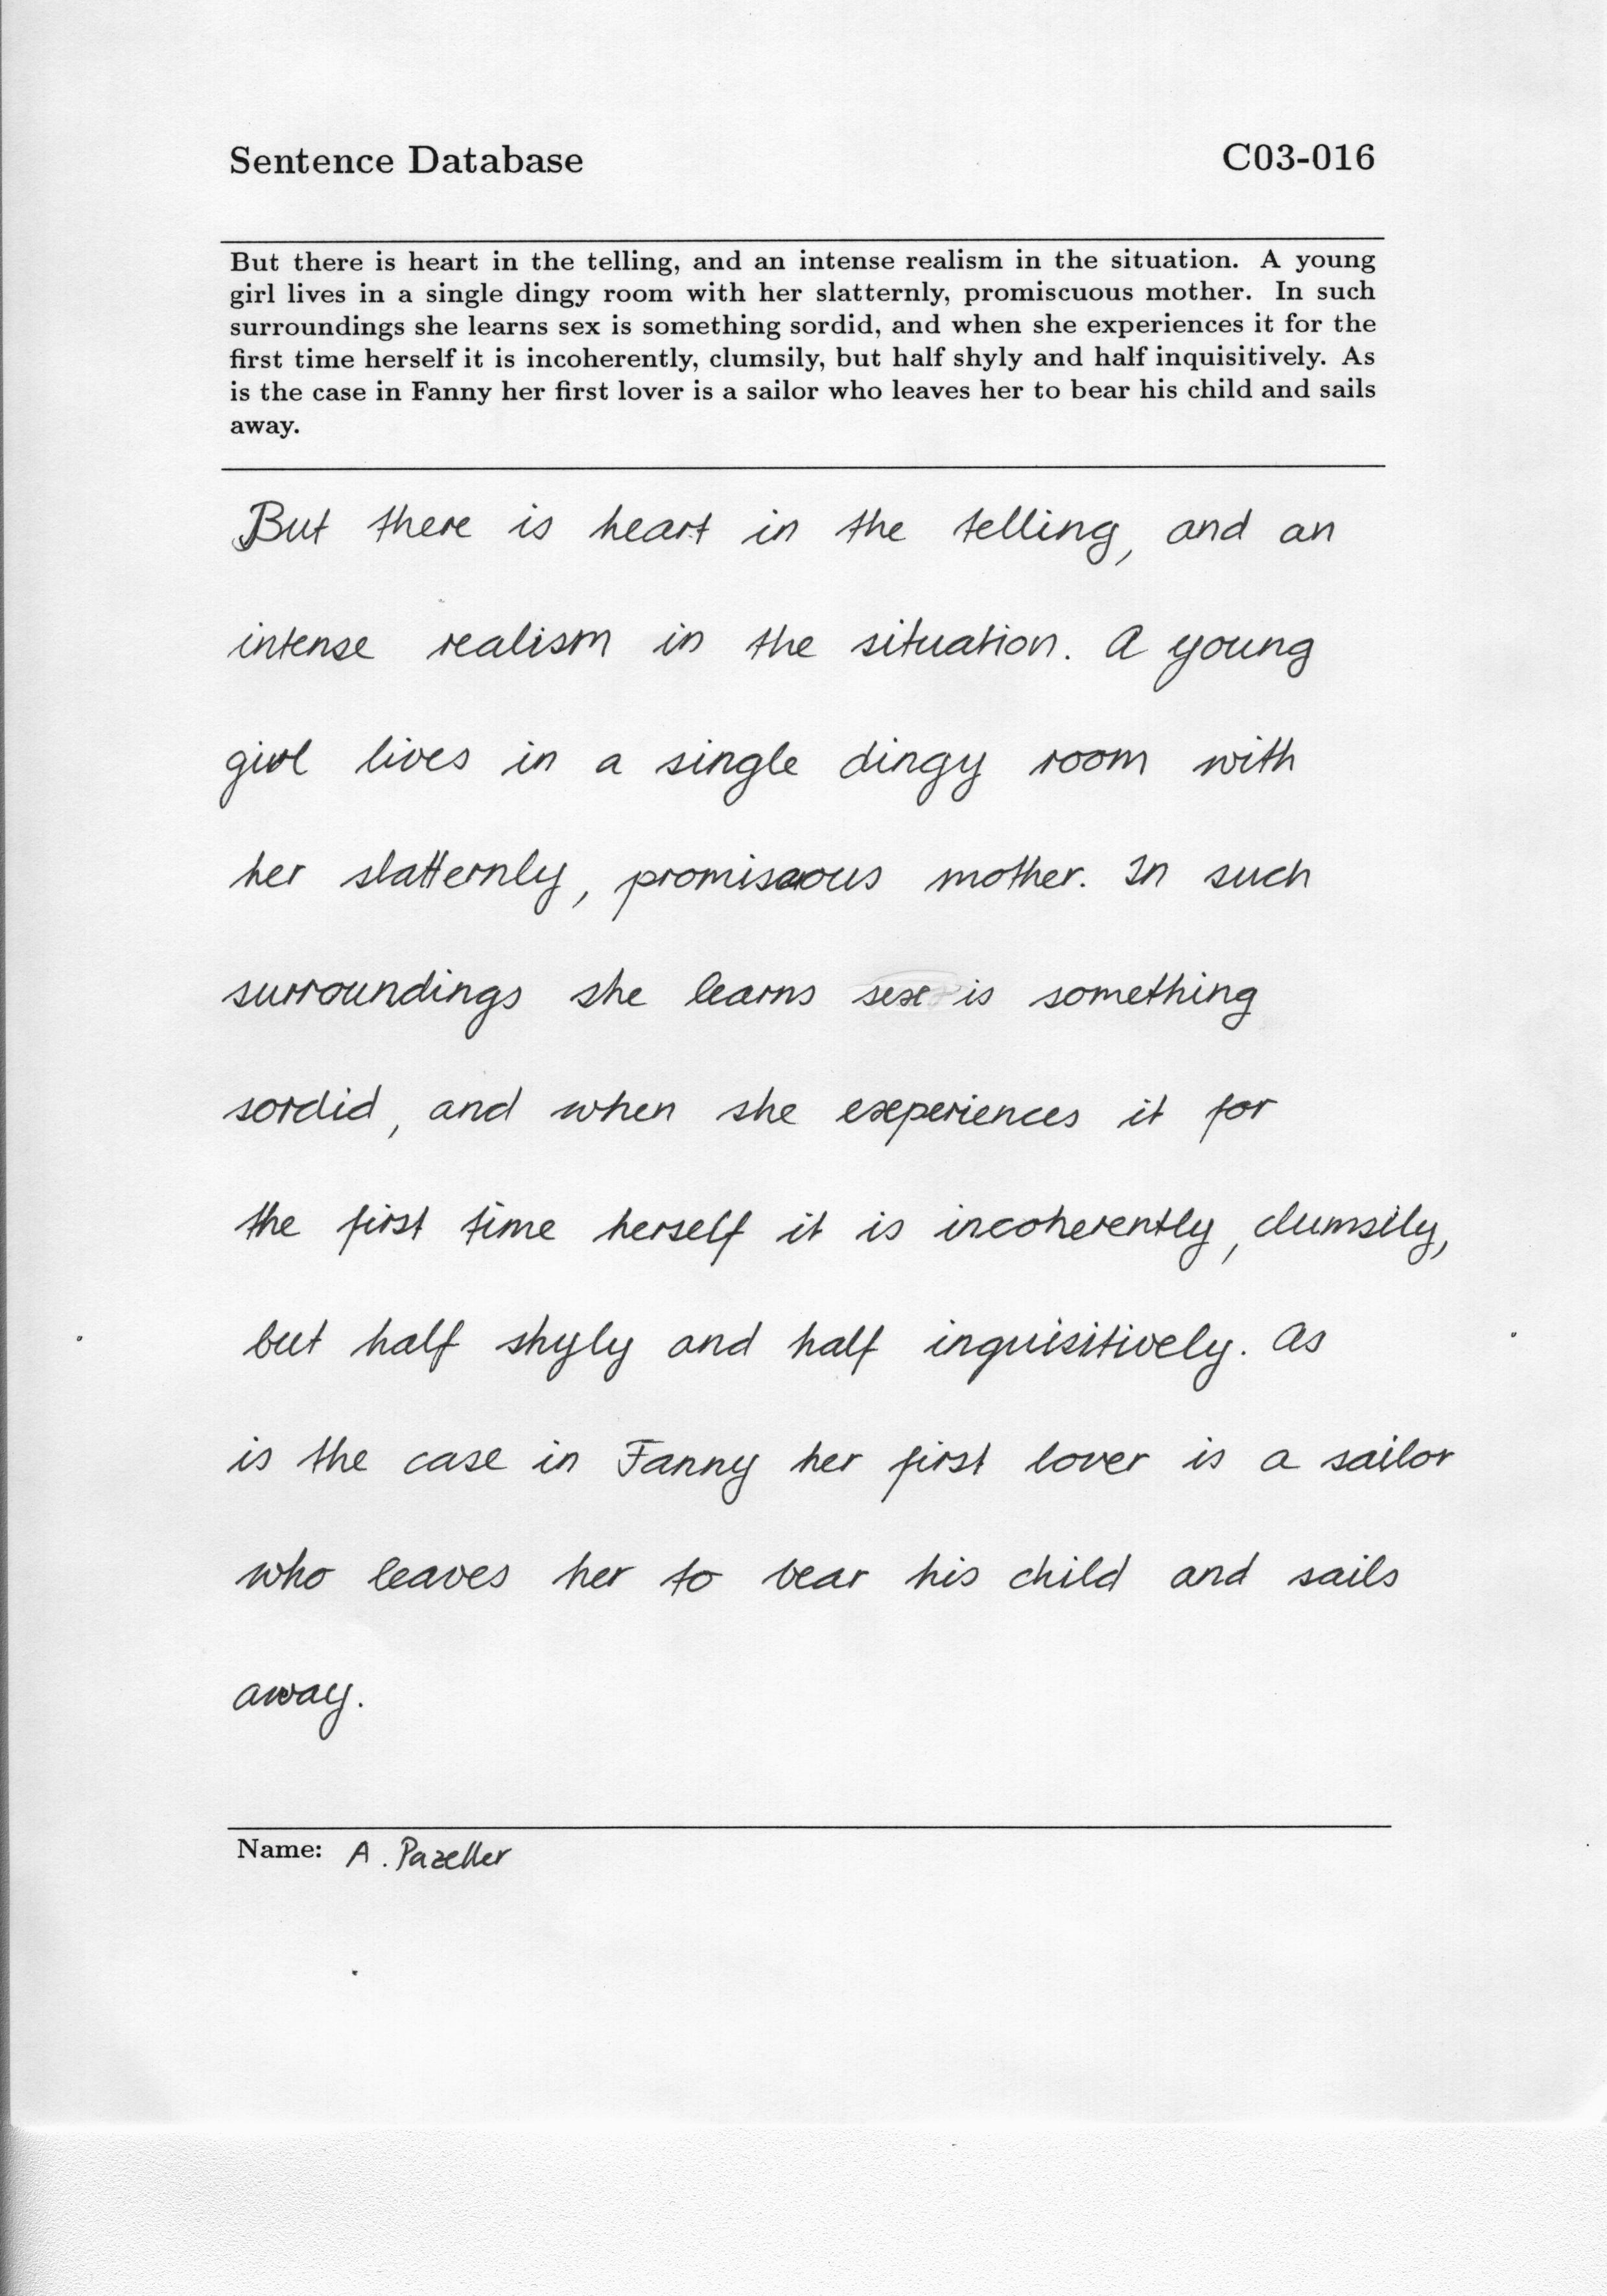 Sentence Database C03-016
But there is heart in the telling, and an intense realism in the situation. A young
girl lives in a single dingy room with her slatternly, promiscuous mother. In such
surroundings she learns sex is something sordid, and when she experiences it for the
first time herself it is incoherently, clumsily, but half shyly and half inquisitively. As
is the case in Fanny her first lover is a sailor who leaves her to bear his child and sails
away.
But there is heart in the telling, and an
intense realism in the situation. A young
girl lives in a single dingy room with
her slatternly, promiscuous mother. In such
surroundings she learns sex is something
sordid, and when she experiences it for
the first time herself it is incoherently, clumsily,
but half shyly and half inquisitively. As
is the case in Fanny her first lover is a sailor
who leaves her to bear his child and sails
away.
Name: A. Pazeller